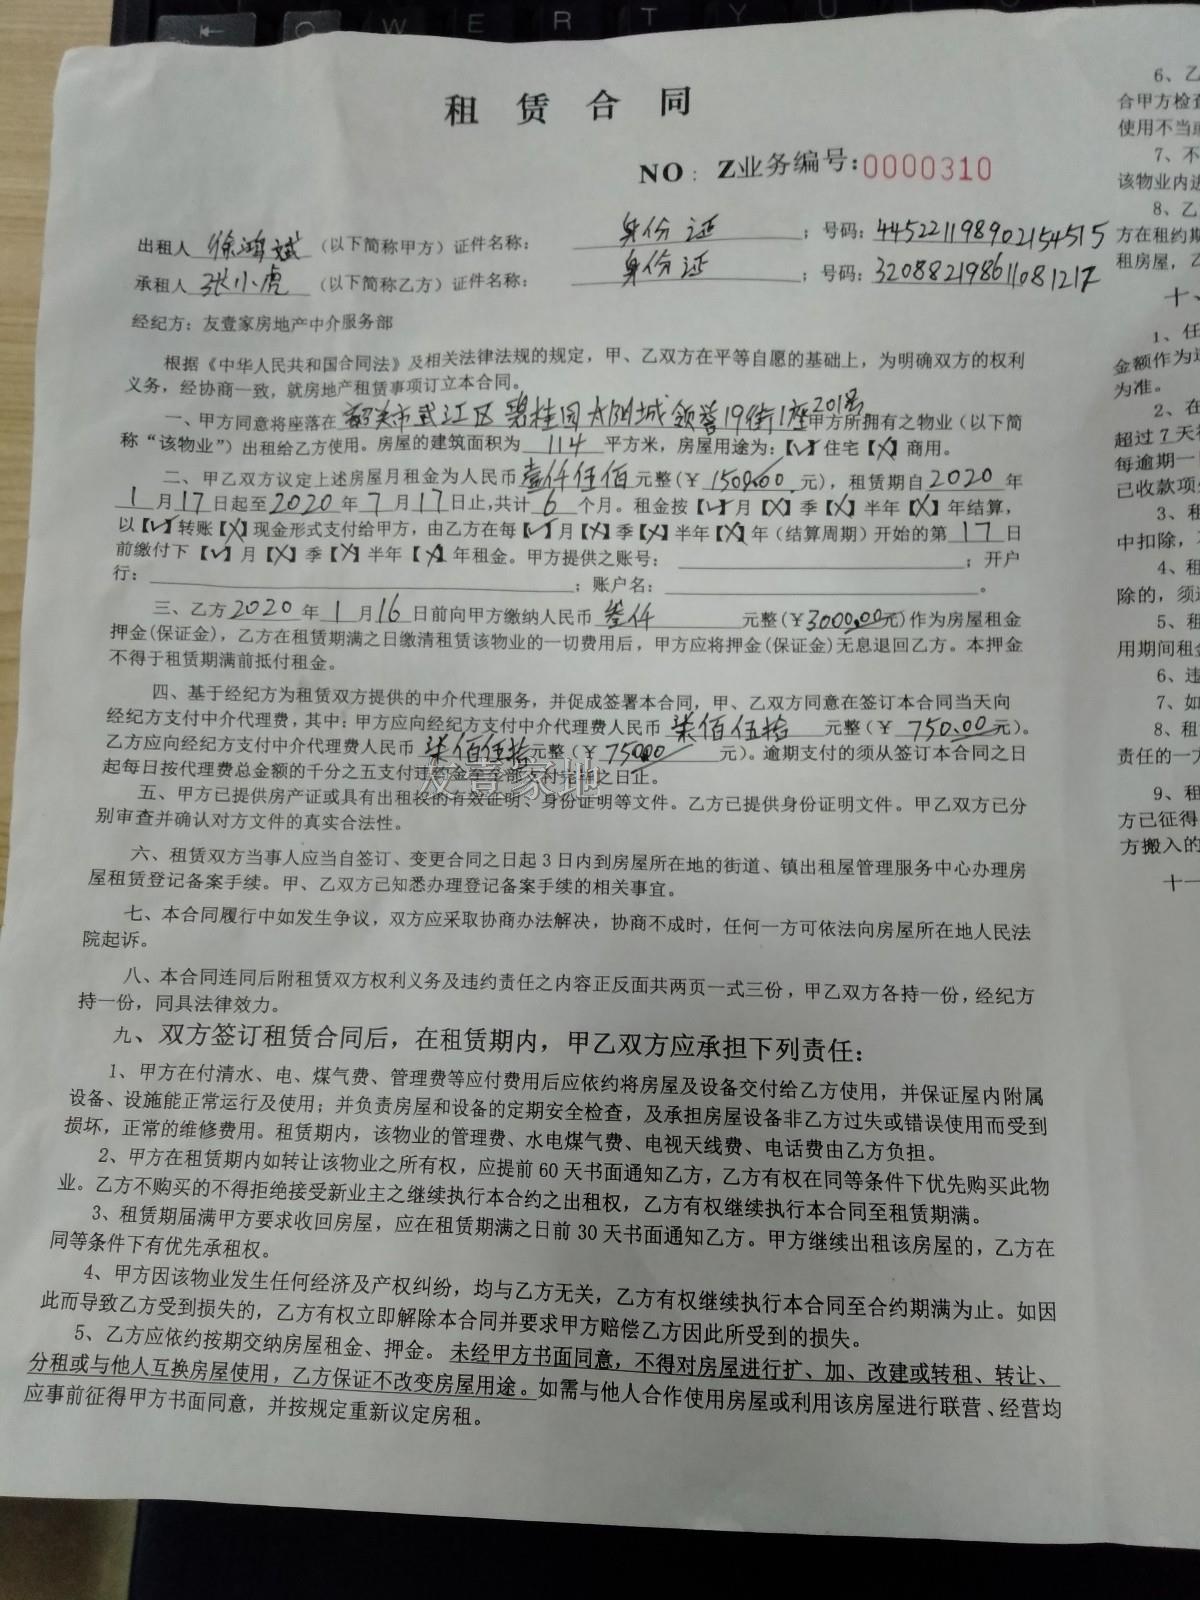 租赁合同
NO：Z业务编号:0000310
出租人 徐鸿斌 （以下简称甲方）证件名称： 身份证 ；号码：445221198902154515
承租人 张小虎 （以下简称乙方）证件名称： 身份证 ；号码：
经纪方：友壹家房地产中介服务部
根据《中华人民共和国合同法》及相关法律法规的规定，甲、乙双方在平等自愿的基础上，为明确双方的权利
义务，经协商一致，就房地产租赁事项订立本合同。
一、甲方同意将座落在 韶关市武江区碧桂园太阳城领誉19街1座201号 甲方所拥有之物业（以下简
称“该物业”）出租给乙方使用。房屋的建筑面积为 114 平方米，房屋用途为：【√】住宅【X】商用。
二、甲乙双方议定上述房屋月租金为人民币 壹仟伍佰 元整（￥ 1500.00 元），租赁期自 2020 年
1 月 17 日起至 2020 年 7 月 17 日止，共计 6 个月。租金按【√】月【X】季【X】半年【X】年结算，
以【√】转账【X】现金形式支付给甲方，由乙方在每【√】月【X】季【X】半年【X】年（结算周期）开始的第 17 日
前缴付下【√】月【X】季【X】半年【X】年租金。甲方提供之账号： ；开户
行： ；账户名： 。
三、乙方 2020 年 1 月 16 日前向甲方缴纳人民币 叁仟 元整（￥3000.00元）作为房屋租金
押金(保证金)，乙方在租赁期满之日缴清租赁该物业的一切费用后，甲方应将押金(保证金)无息退回乙方。本押金
不得于租赁期满前抵付租金。
四、基于经纪方为租赁双方提供的中介代理服务，并促成签署本合同，甲、乙双方同意在签订本合同当天向
经纪方支付中介代理费，其中：甲方应向经纪方支付中介代理费人民币 柒佰伍拾 元整（￥ 750.00 元）。
乙方应向经纪方支付中介代理费人民币 柒佰伍拾 元整（￥ 750.00 元）。逾期支付的须从签订本合同之日
起每日按代理费总金额的千分之五支付违约金至全部支付完毕之日止。
友壹家地
五、甲方已提供房产证或具有出租权的有效证明、身份证明等文件。乙方已提供身份证明文件。甲乙双方已分
别审查并确认对方文件的真实合法性。
六、租赁双方当事人应当自签订、变更合同之日起 3 日内到房屋所在地的街道、镇出租屋管理服务中心办理房
屋租赁登记备案手续。甲、乙双方已知悉办理登记备案手续的相关事宜。
七、本合同履行中如发生争议，双方应采取协商办法解决，协商不成时，任何一方可依法向房屋所在地人民法
院起诉。
八、本合同连同后附租赁双方权利义务及违约责任之内容正反面共两页一式三份，甲乙双方各持一份，经纪方
持一份，同具法律效力。
九、双方签订租赁合同后，在租赁期内，甲乙双方应承担下列责任：
1、甲方在付清水、电、煤气费、管理费等应付费用后应依约将房屋及设备交付给乙方使用，并保证屋内附属
设备、设施能正常运行及使用；并负责房屋和设备的定期安全检查，及承担房屋设备非乙方过失或错误使用而受到
损坏，正常的维修费用。租赁期内，该物业的管理费、水电煤气费、电视天线费、电话费由乙方负担。
2、甲方在租赁期内如转让该物业之所有权，应提前 60 天书面通知乙方，乙方有权在同等条件下优先购买此物
业。乙方不购买的不得拒绝接受新业主之继续执行本合约之出租权，乙方有权继续执行本合同至租赁期满。
3、租赁期届满甲方要求收回房屋，应在租赁期满之日前 30 天书面通知乙方。甲方继续出租该房屋的，乙方在
同等条件下有优先承租权。
4、甲方因该物业发生任何经济及产权纠纷，均与乙方无关，乙方有权继续执行本合同至合约期满为止。如因
此而导致乙方受到损失的，乙方有权立即解除本合同并要求甲方赔偿乙方因此所受到的损失。
5、乙方应依约按期交纳房屋租金、押金。未经甲方书面同意，不得对房屋进行扩、加、改建或转租、转让、
分租或与他人互换房屋使用，乙方保证不改变房屋用途。如需与他人合作使用房屋或利用该房屋进行联营、经营均
应事前征得甲方书面同意，并按规定重新议定房租。
6、乙
合甲方检查
使用不当或
7、不
该物业内进
8、乙
方在租约期
租房屋，乙
十、
1、任
金额作为违
为准。
2、在
超过 7 天
每逾期一
已收款项
3、租
中扣除，
4、租
除的，须
5、租
用期间租金
6、违
7、如
8、租
责任的一方
9、租
方已征得
方搬入的
十一
W E R T Y U